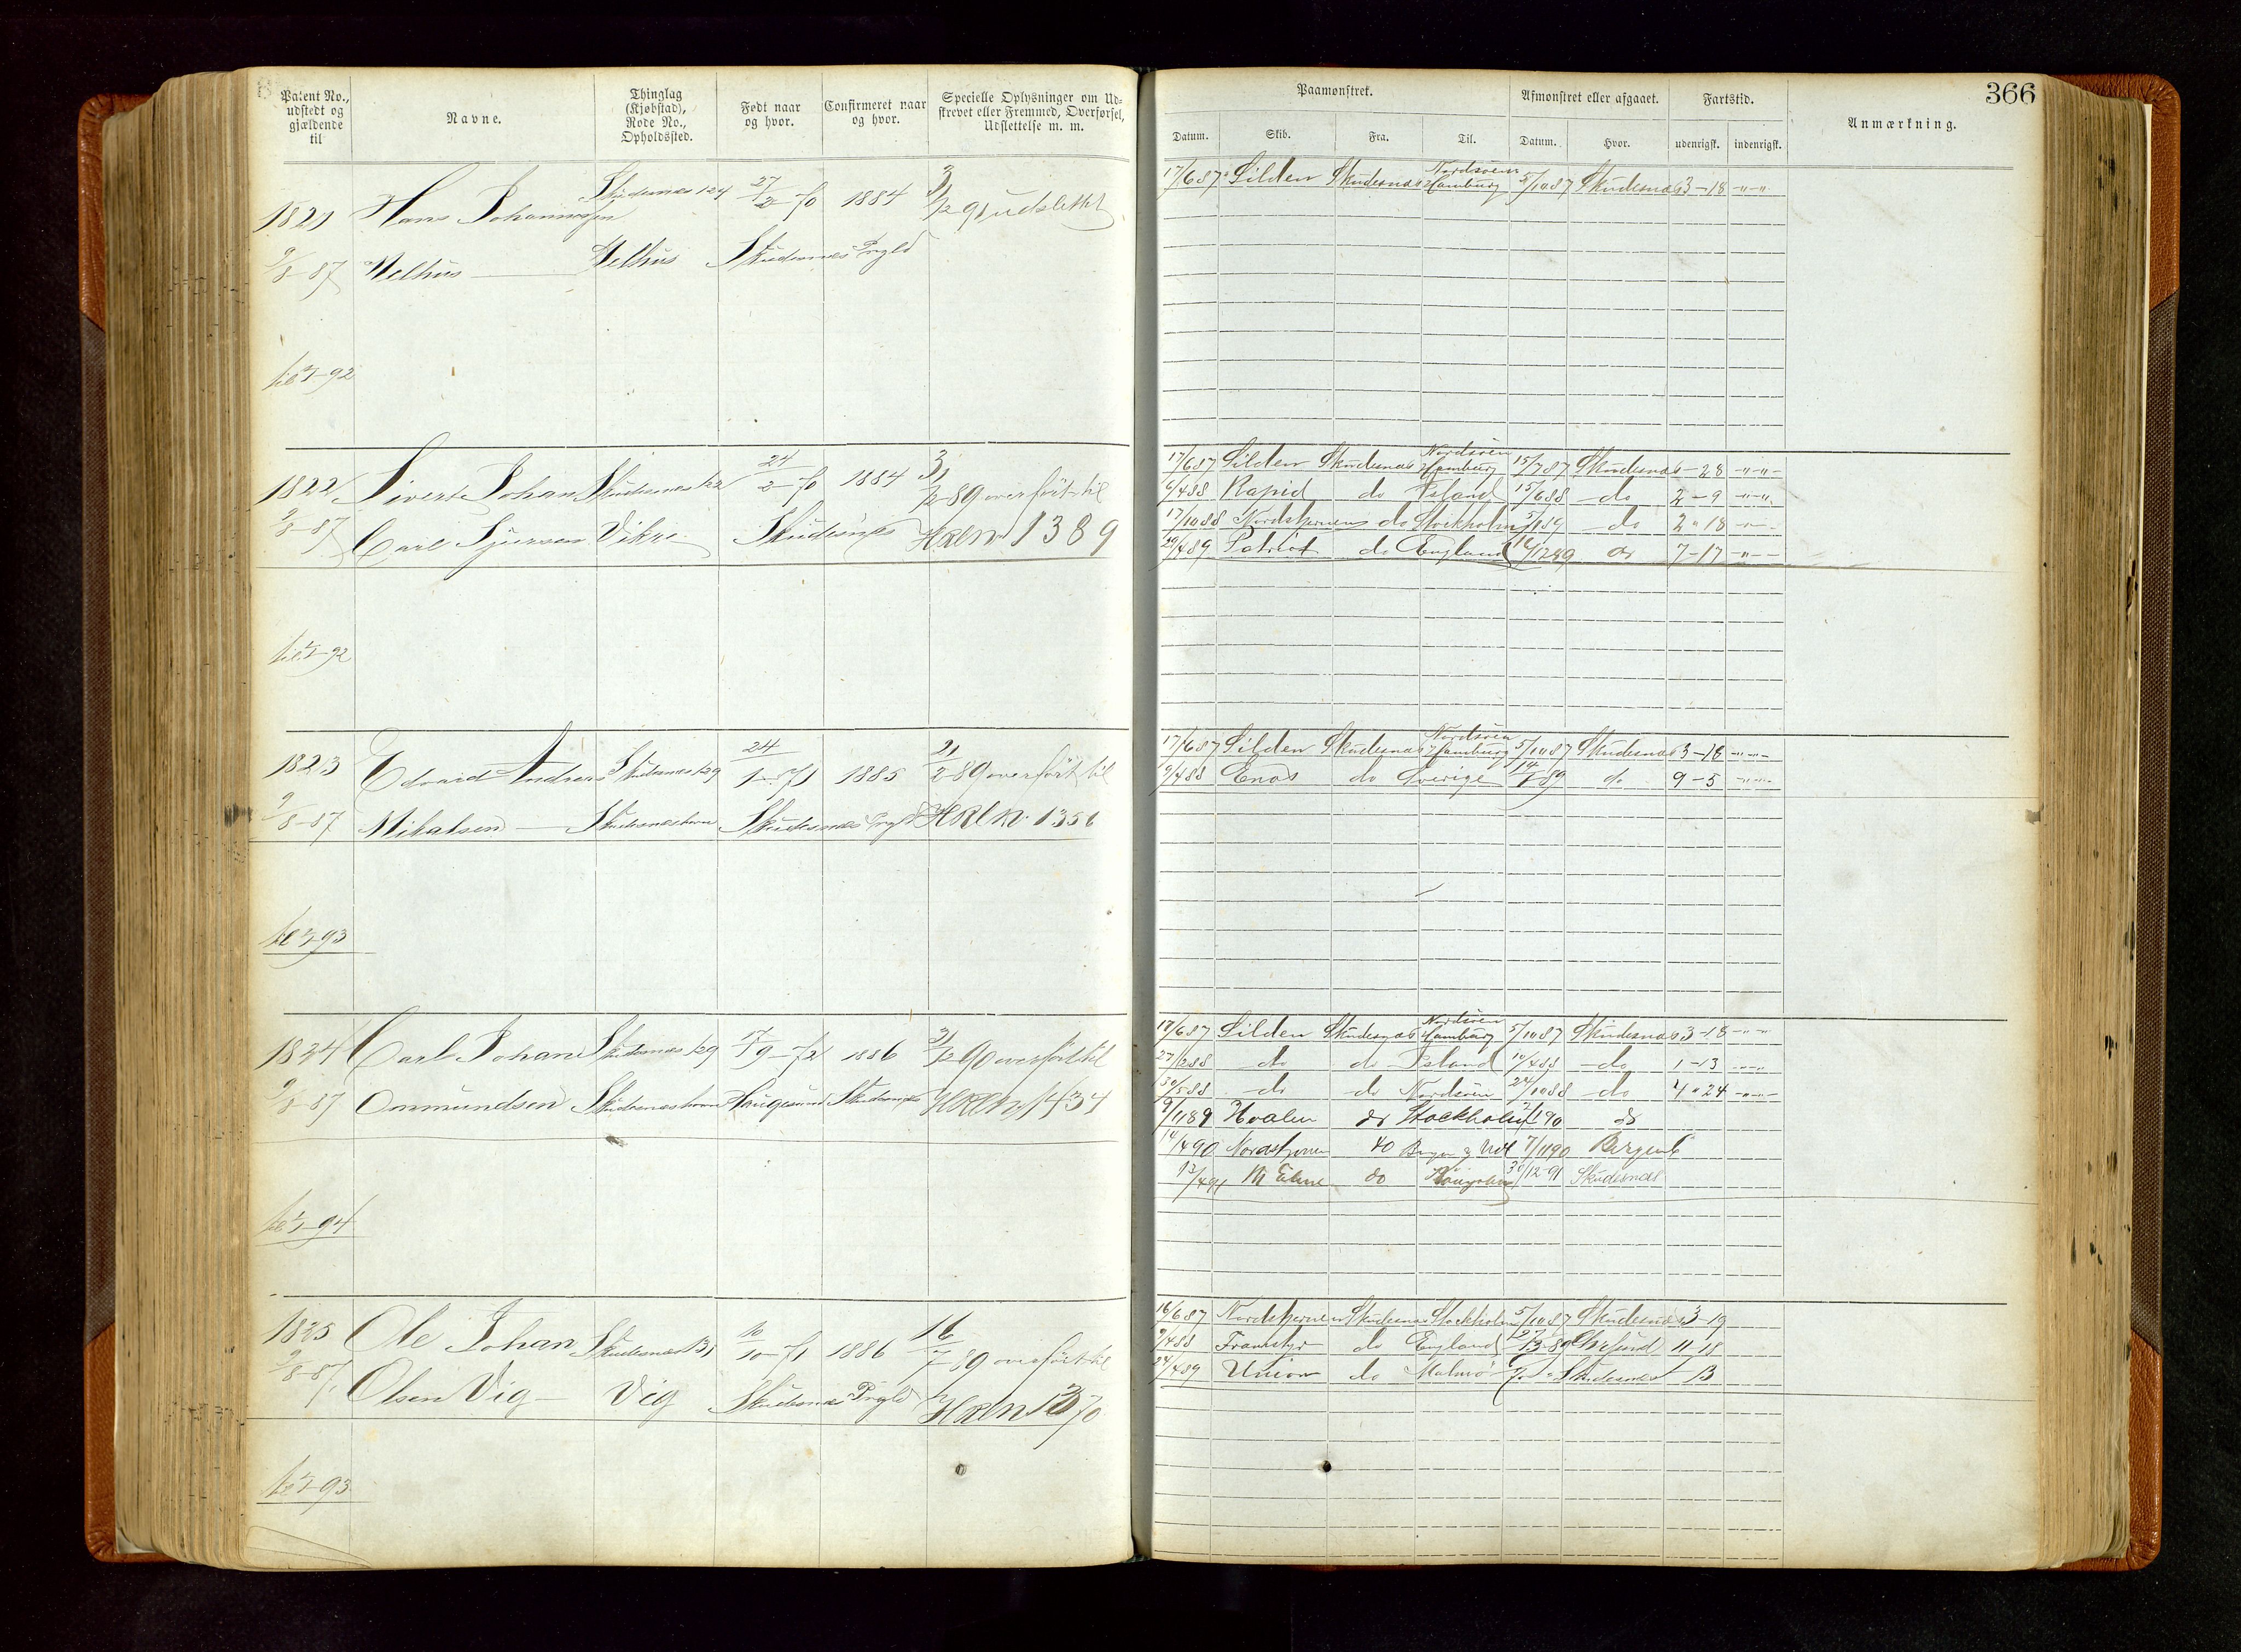 Patent No., udstedt og gjældende til
Navne.
Thinglag (Kjøbstad), Rode No., Opholdssted.
Født naar og hvor.
Confirmeret naar og hvor.
Specielle Oplysninger om Udskrevet eller Fremmed, Overførsel, Udslettelse m. m.
Paamønstret.
Afmønstret eller afgaaet.
Fartstid.
Anmærkning.
366
Datum. Skib. Fra. Til. Datum. Hvor. udenrigsk. indenrigsk.
1821 Hans Johannesen Skudesnes 124 27/2-70 1884 3/12 91 udslettet
9/8-87 Melhus Melhus Skudesnes Prgld
til 1/1-92
17/6 87 Silden Skudesnes Nordsöen Hamburg 5/10 87 Skudesnes 3-18 -"-"-
1822 Sivert Johan Skudesnes 122 24/2-70 1884 3/12-89 overfört til
9/8-87 Carl Sjursen Vikre Skudesnes HRLN 1389
til 1/1-92
17/6 87 Silden Skudesnes Nordsöen Hamburg 15/7 87 Skudesnes -28 -"-"-
6/4 88 Rapid do Island 15/6 88 do 2-9 -"-"-
17/10 88 Nordstjernen do Stockholm 5/1 89 do 2"18
29/4 89 Patriot do England 16/12 89 do 7-17
1823 Edvard Andreas Skudesnes 129 24/1-71 1885 21/2-89 overfört til
9/8-87 Mikalsen Skudesneshavn Skudesnes Prgld HRLN 1356
til 1/1-93
17/6 87 Silden Skudesnes Nordsöen Hamburg 5/10 87 Skudesnes 3-18 -"-"-
9/4 88 Enos do Sverige 14/1 89 do 9-5 -"-"-
1824 Carl Johan Skudesnes 129 17/9-72 1886 3/12 90 overfört til
9/8-87 Ommundsen Skudesneshavn Haugesund Skudesnes HRLN 1434
til 1/1-94
17/6 87 Silden Skudesnes Nordsöen Hamburg 5/10 87 Skudesnes 3-18 -"-"-
27/2 88 do do Island 10/4 88 do 1-13 -"-"-
30/5 88 do do Nordsöen 24/10 88 do 4"24 -"-"-
9/11 89 Hvalen do Stockholm 2/1 90 do
14/4 90 Nordstjernen do Bergen & Udl 7/11 90 Bergen
13/4 91 do 30/12-91 Skudesnes
1825 Ole Johan Skudesnes 131 10/10-71 1886 16/7 89 overfört til
9/8-87 Olsen Vig Vig Skudesnes Prgld HRLN 1370
til 1/1-93
16/6 87 Nordstjernen Skudesnes Stockholm 5/10 87 Skudesnes 3-19
9/4 88 do England 11-18
24/4 89 Union do Malmö Skudesnes